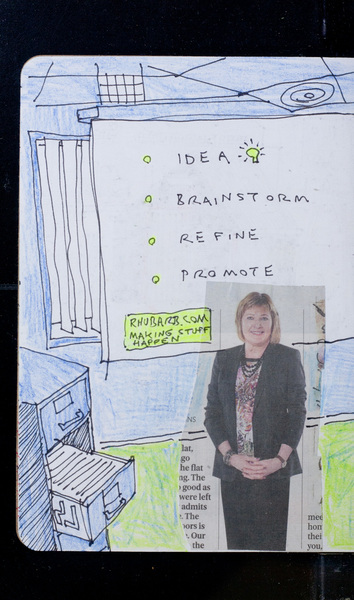 IDEA
BRAINSTORM
REFINE
PROMOTE
RHUBARB.COM
MAKING STUFF
HAPPEN
NS
lat,
go
he flat
ng. The
good as
were left
admits
. The
oors is
. Our
the
mee
hom
thei
you,